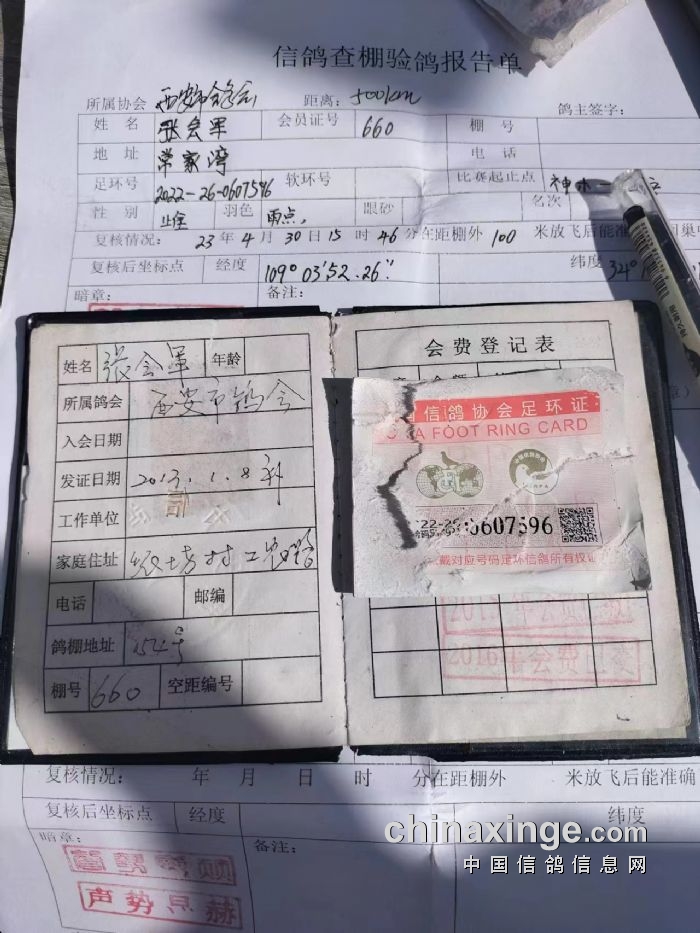 信鸽查棚验鸽报告单
所属协会 西安市鸽会 距离: 500km 鸽主签字:
姓 名 张会军 会员证号 660 棚 号
地 址 常家湾 电 话
足环号 2022-26-0607596 软环号 比赛起止点 神木一
性 别 雄 羽色 雨点, 眼砂 名次
复核情况: 23 年 4 月 30 日 15 时 46 分在距棚外 100 米放飞后能准 回巢
复核后坐标点 经度 109° 03′52.26″ 纬度 34°
暗章: 备注:
姓名 张会军 年龄
所属鸽会 西安市鸽会
入会日期
发证日期 2013.1.8
工作单位
家庭住址
电话 邮编
鸽棚地址 154号
棚号 660 空距编号
会费登记表
信鸽协会足环证
A FOOT RING CARD
22-26 0607596
戴对应号码足环信鸽所有权证
2016年会费已交
复核情况: 年 月 日 时 分在距棚外 米放飞后能准确
复核后坐标点 经度 纬度
暗章: 备注:
声势显赫
chinaxinge.com
中国信鸽信息网